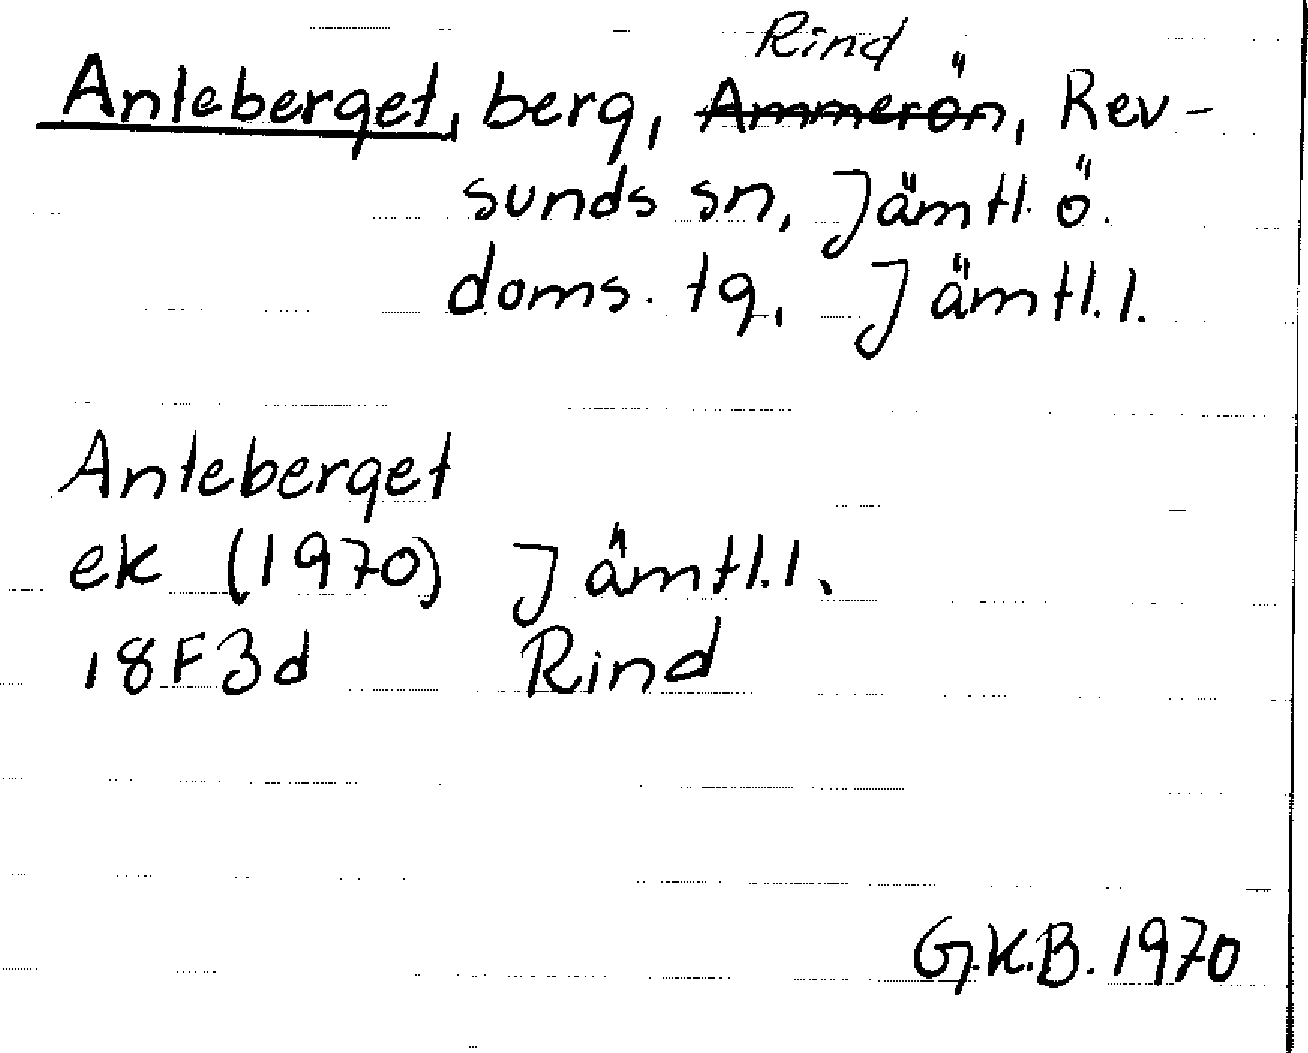 Rind
Anteberget, berg, Ammerön, Rev-
sunds sn, Jämtl. ö.
doms. tg, Jämtl. l.
Anteberget
ek (1970) Jämtl. l.
18F3d Rind
G.K.B. 1970